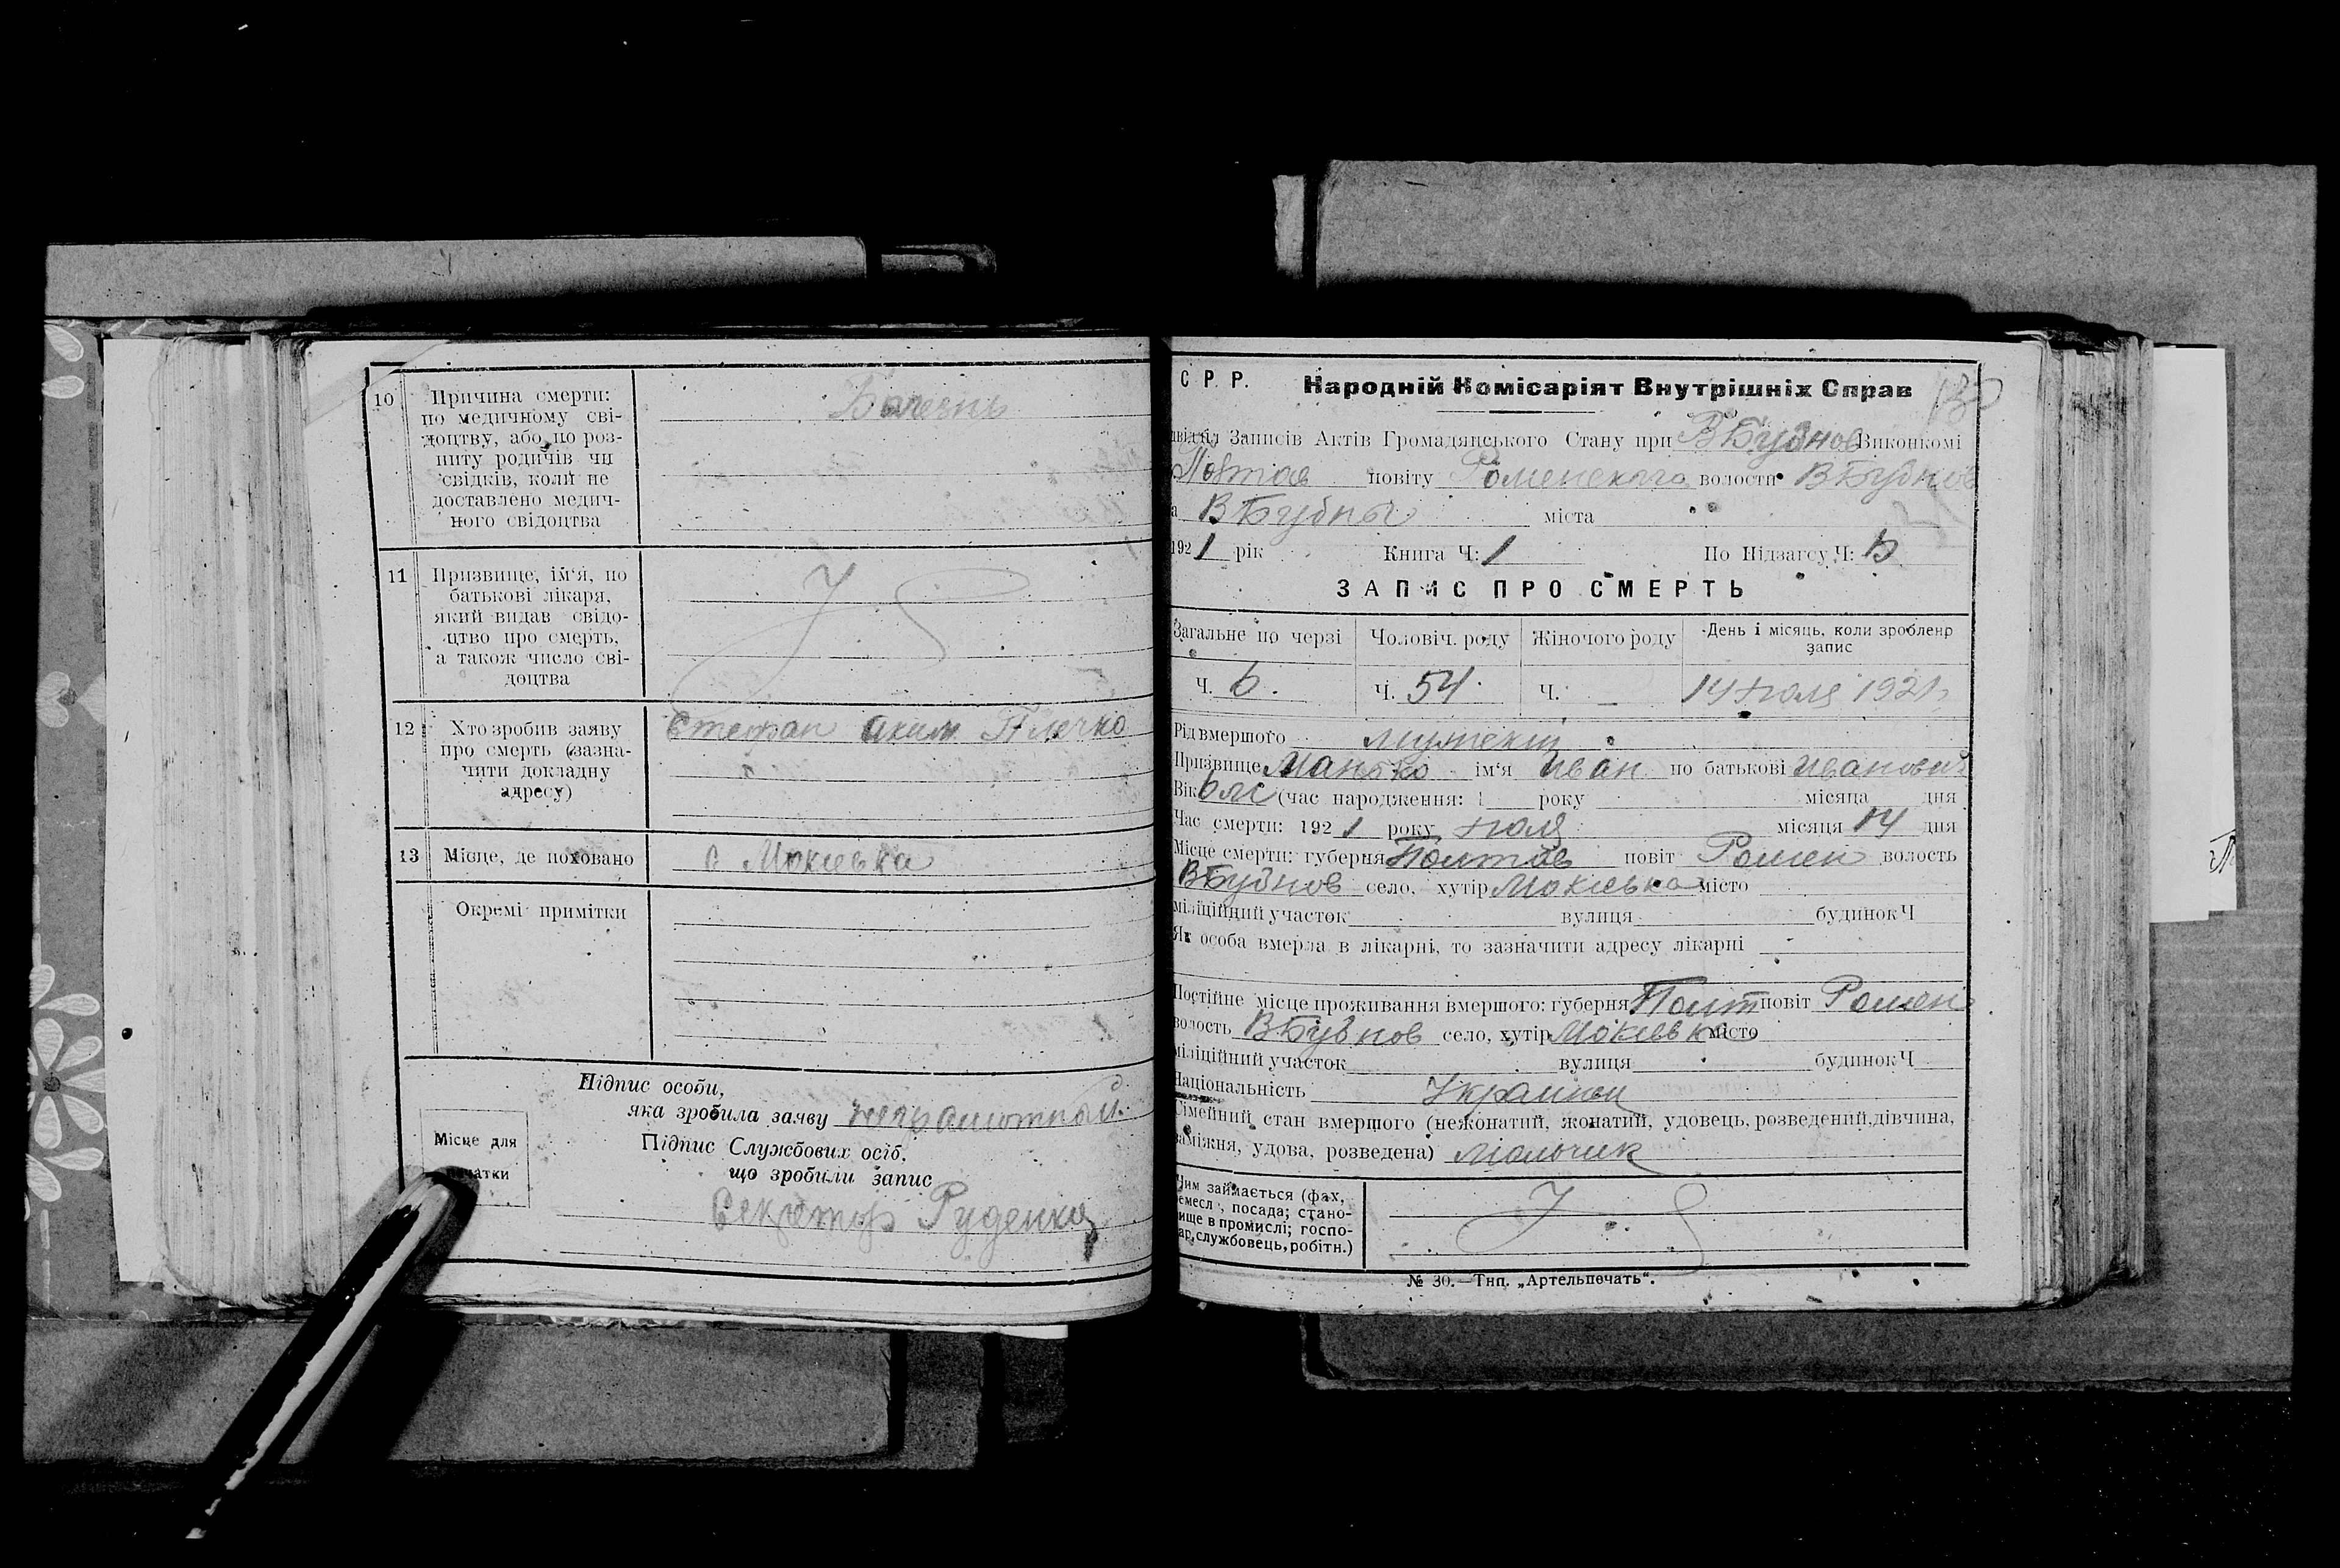 10
Причина смерти:
по медичному сві-
доцтву, або по роз-
питу родичів чи
свідків, коли не
доставлено медич-
ного свідоцтва
11
Призвище, ім'я, по
батькові лікаря,
який видав свідо-
цтво про смерть,
а також число сві-
доцтва
12
Хто зробив заяву
про смерть (зазна-
чити докладну
адресу)
Стефан Аким
13
Місце, де поховано
с Мокиевка
Окремі примітки
Підпис особи,
яка зробила заяву неграмотный
Місце для
Підпис Службових осіб,
що зробили запис
Секретор Руденко
С Р. Р. Народній Комісаріят Внутрішніх Справ
Записів Актів Громадянського Стану при ВБубнов Виконкомі
повіту Роменскаго волости ВБубнов
ВБубны міста
1921 рік Книга Ч: 1 По Підзагсу Ч:
ЗАПИС ПРО СМЕРТЬ
Загальне по черзі Чоловіч. роду Жіночого роду День і місяць, коли зроблено
запис
Ч. 6. Ч. 54. Ч. — 14 июля 1921
Рід вмершого
Призвище ім'я Иван по батькові Иванович
Вік (час народження: 1 року місяця дня
Час смерти: 1921 року июля місяця 14 дня
Місце смерти: губерня Полтав повіт Ромен волость
ВБубнов село, хутір Мокиевка місто
міліційний участок вулиця будинок Ч
Як особа вмерла в лікарні, то зазначити адресу лікарні
Постійне місце проживання вмершого: губерня Полт повіт Ромен
волость ВБубнов село, хутір Мокиевка місто
міліційний участок вулиця будинок Ч
Національність
Сімейний стан вмершого (нежонатий, жонатий, удовець, розведений, дівчина,
заміжня, удова, розведена) Мальчик
Чим займається (фах,
ремесл , посада; стано-
вище в промислі; госпо-
дар, службовець, робітн.)
№ 30.—Тип. „Артельпечать“.